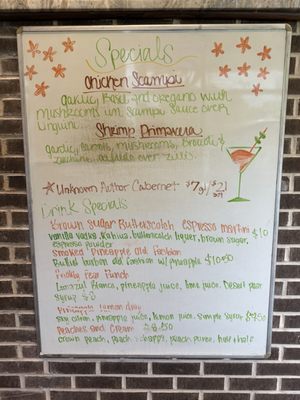 Specials
Chicken Scampi
garlic, Basil and oregano with
mushrooms in Scampi sauce over
linguini
Shrimp Primavera
garlic, mushrooms, broccoli &
zucchini over ziti
Unknown Author Cabernet $7
Drink Specials
Brown Sugar Butterscotch espresso martini $10
vanilla vodka, Kahlua, butterscotch liquer, brown sugar,
espresso powder
Smoked Pineapple Old Fashion
Bullet burbon old fashion w/ pineapple $10.50
Prickly Pear Punch
pineapple juice, lime juice, Desert pear
syrup
lemon drop
pineapple juice, lemon juice, simple syrup
Peaches and Cream $8.50
Crown peach, peach schapps, peach puree, half + half